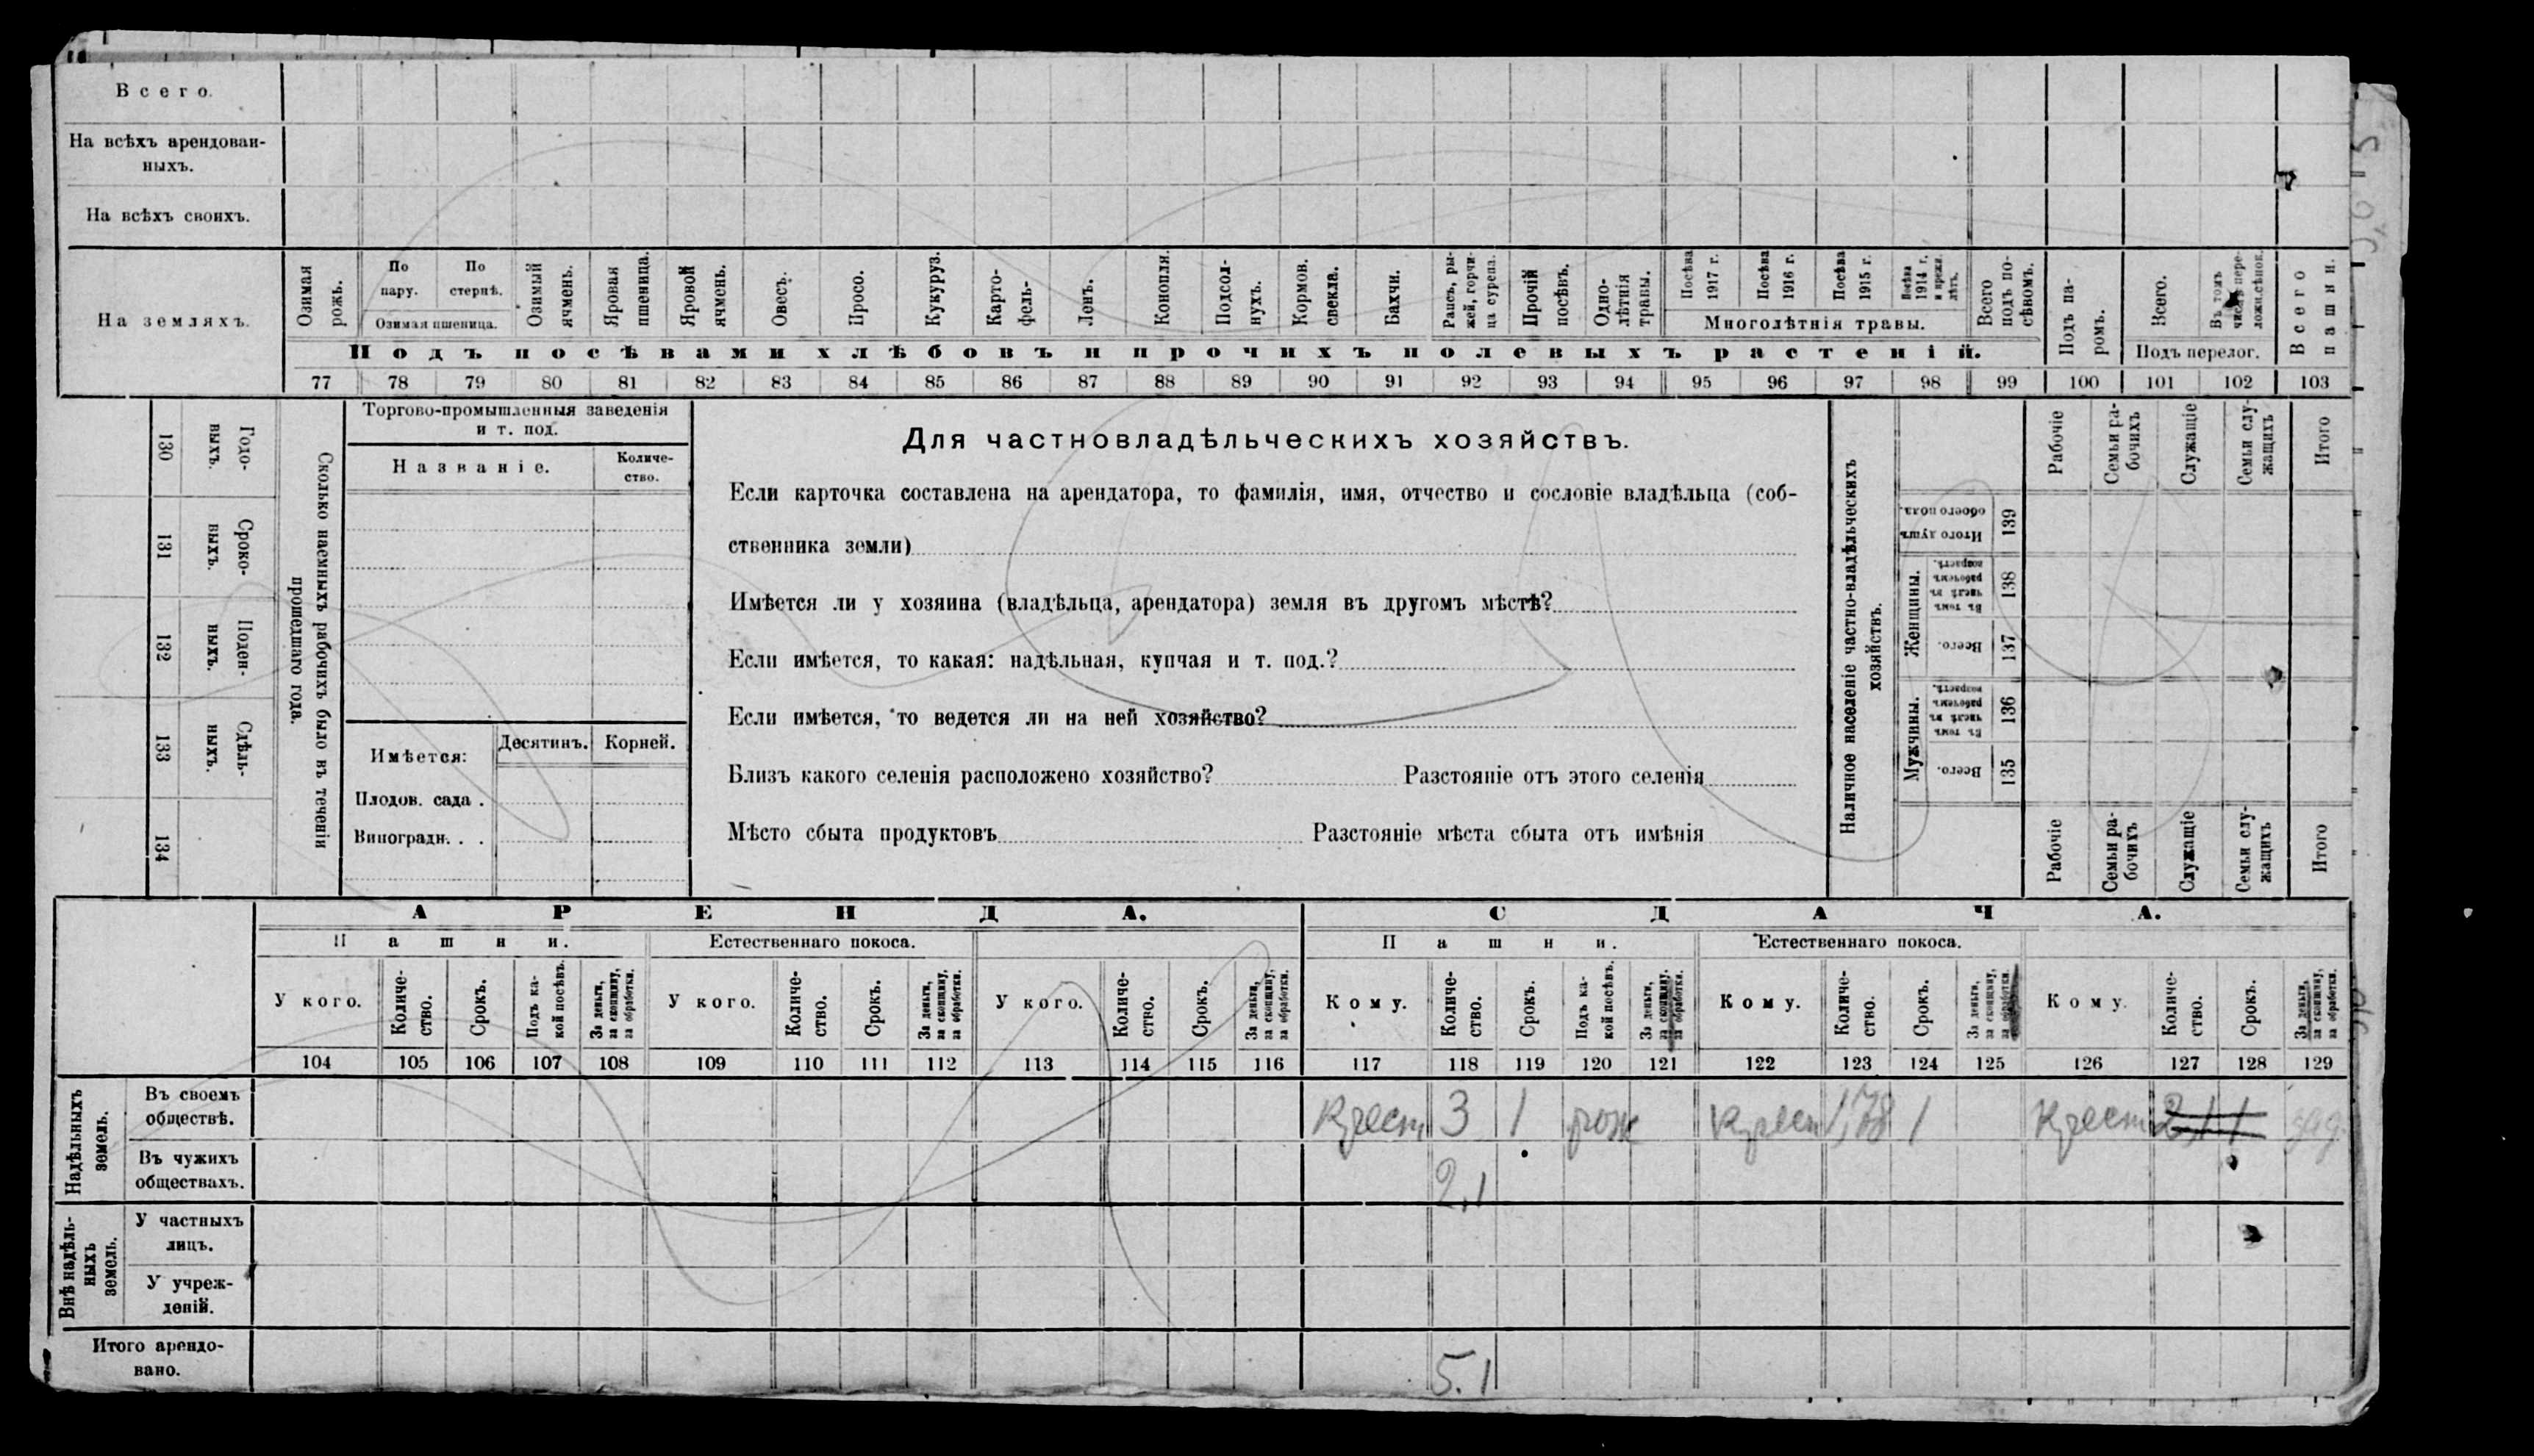 Всего.
На всѣхъ арендован-
ныхъ.
На всѣхъ своихъ.
На земляхъ.
Озимая рожь.
По пару.
По стернѣ.
Озимая пшеница.
Озимый ячмень.
Яровая пшеница.
Яровой ячмень.
Овесъ.
Просо.
Кукуруз.
Карто-
фель.
Ленъ.
Конопля.
Подсол-
нухъ.
Кормов. свекла.
Бахчи.
Рапсъ, ры-
жей, горчи-
ца сурепа.
Прочій посѣвъ.
Одно-
лѣтнія травы.
Посѣва 1917 г.
Посѣва 1916 г.
Посѣва 1915 г.
Посѣва 1914 г. и прежн. лѣтъ.
Многолѣтнія травы.
Всего подъ по-
сѣвомъ.
Подъ па-
ромъ.
Всего.
Въ томъ числѣ пере-
ложн. сѣнок.
Подъ перелог.
Всего пашни.
Подъ посѣвами хлѣбовъ и прочихъ полевыхъ растеній.
77 78 79 80 81 82 83 84 85 86 87 88 89 90 91 92 93 94 95 96 97 98 99 100 101 102 103
130 Годо-
выхъ.
131 Сроко-
ныхъ.
132 Поден-
ныхъ.
133 Сдѣль-
ныхъ.
134
Сколько наемныхъ рабочихъ было въ теченіи
прошедшаго года.
Торгово-промышленныя заведенія
и т. под.
Названіе.
Количе-
ство.
Имѣется:
Десятинъ.
Корней.
Плодов. сада .
Виноградн. . .
Для частновладѣльческихъ хозяйствъ.
Если карточка составлена на арендатора, то фамилія, имя, отчество и сословіе владѣльца (соб-
ственника земли)
Имѣется ли у хозяина (владѣльца, арендатора) земля въ другомъ мѣстѣ?
Если имѣется, то какая: надѣльная, купчая и т. под.?
Если имѣется, то ведется ли на ней хозяйство?
Близъ какого селенія расположено хозяйство? Разстояніе отъ этого селенія
Мѣсто сбыта продуктовъ Разстояніе мѣста сбыта отъ имѣнія
Наличное населеніе частно-владѣльческихъ
хозяйствъ.
Рабочіе
Семьи ра-
бочихъ
Служащіе
Семьи слу-
жащихъ
Итого
Итого душъ обоего пола.
139
Женщины.
Въ томъ числѣ въ рабочемъ возрастѣ.
138
Всего.
137
Мужчины.
Въ томъ числѣ въ рабочемъ возрастѣ.
136
Всего.
135
Рабочіе
Семьи ра-
бочихъ
Служащіе
Семьи слу-
жащихъ
Итого
АРЕНДА. СДАЧА.
Пашни. Естественнаго покоса. Пашни. Естественнаго покоса.
У кого.
Количе-
ство.
Срокъ.
Подъ ка-
кой посѣвъ.
За деньги,
за скопщину,
за обработки.
У кого.
Количе-
ство.
Срокъ.
За деньги,
за скопщину,
за обработки.
У кого.
Количе-
ство.
Срокъ.
За деньги,
за скопщину,
за обработки.
Кому.
Количе-
ство.
Срокъ.
Подъ ка-
кой посѣвъ.
За деньги,
за скопщину,
за обработки.
Кому.
Количе-
ство.
Срокъ.
За деньги,
за скопщину,
за обработки.
Кому.
Количе-
ство.
Срокъ.
За деньги,
за скопщину,
за обработки.
104 105 106 107 108 109 110 111 112 113 114 115 116 117 118 119 120 121 122 123 124 125 126 127 128 129
Надѣльныхъ
земель.
Въ своемъ
обществѣ.
Крест 3 1 рож Крест 1,78 1 Крест 2,1 1
Въ чужихъ
обществахъ.
2,1
Внѣ надѣль-
ныхъ
земель.
У частныхъ
лицъ.
У учреж-
деній.
Итого арендо-
вано.
5.1